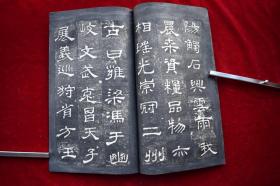 陽觸石興雲雨我
農桒資糧品物亦
相瑤光崇冠二州
古曰雍梁馮于豳
岐文武克昌天子
展義巡狩省方玉